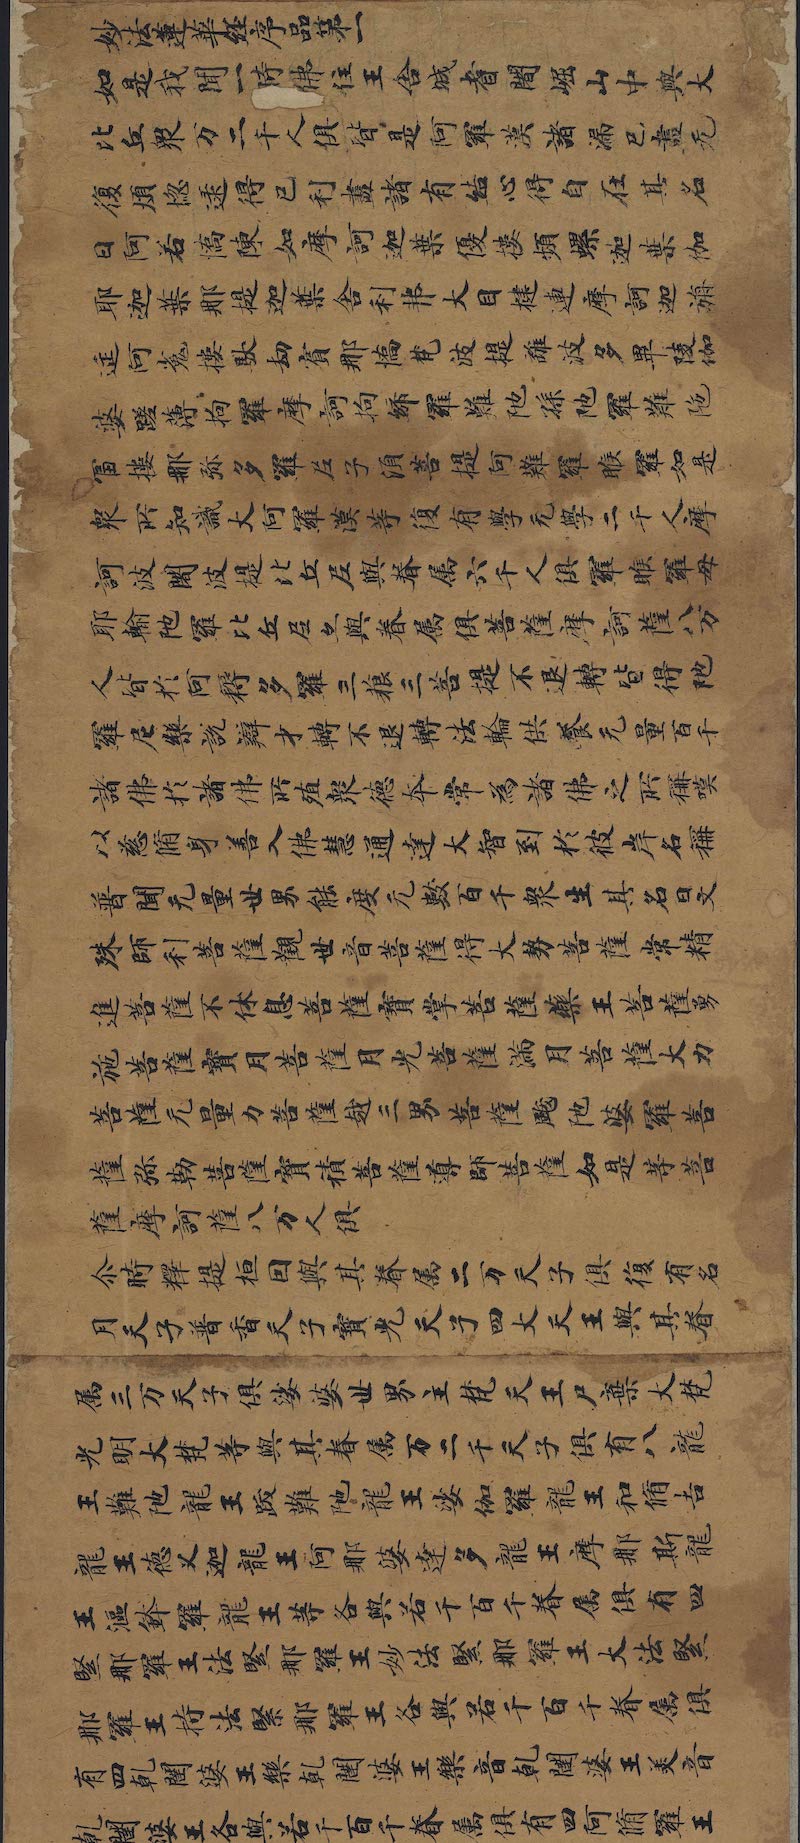 妙法蓮華經序品第一
如是我聞一時佛住王舍城耆闍崛山中與大
比丘衆万二千人俱皆是阿羅漢諸漏已盡无
復煩惱逮得已利盡諸有結心得自在其名
曰阿若憍陳如摩訶迦葉優樓頻螺迦葉伽
耶迦葉那提迦葉舍利弗大目揵連摩訶迦旃
延阿㝹樓馱劫賓那憍梵波提離波多畢陵伽
婆蹉薄拘羅摩訶拘絺羅難陁孫陁羅難陁
富樓那弥多羅尼子須菩提阿難羅睺羅如是
衆所知識大阿羅漢等復有學无學二千人摩
訶波闍波提比丘尼與眷属六千人俱羅睺羅母
耶輸陁羅比丘尼亦與眷属俱菩薩摩訶薩八万
人皆於阿耨多羅三藐三菩提不退轉皆得陁
羅尼樂說辯才轉不退轉法輪供養无量百千
諸佛於諸佛所殖衆德本常為諸佛之所稱嘆
以慈脩身善入佛慧通達大智到於彼岸名稱
普聞无量世界能度无數百千衆生其名曰文
殊師利菩薩觀世音菩薩得大勢菩薩常精
進菩薩不休息菩薩寶掌菩薩藥王菩薩勇
施菩薩寶月菩薩月光菩薩滿月菩薩大力
菩薩无量力菩薩越三界菩薩颰陁婆羅菩
薩弥勒菩薩寶積菩薩導師菩薩如是等菩
薩摩訶薩八万人俱
尒時釋提桓因與其眷属二万天子俱復有名
月天子普香天子寶光天子四大天王與其眷
属三万天子俱娑婆世界主梵天王尸棄大梵
光明大梵等與其眷属万二千天子俱有八龍
王難陁龍王跋難陁龍王娑伽羅龍王和脩吉
龍王德叉迦龍王阿那婆達多龍王摩那斯龍
王漚鉢羅龍王等各與若干百千眷属俱有四
緊那羅王法緊那羅王妙法緊那羅王大法緊
那羅王持法緊那羅王各與若干百千眷属俱
有四乹闥婆王樂乹闥婆王樂音乹闥婆王美音
乹闥婆王各與若干百千眷属俱有四阿脩羅王